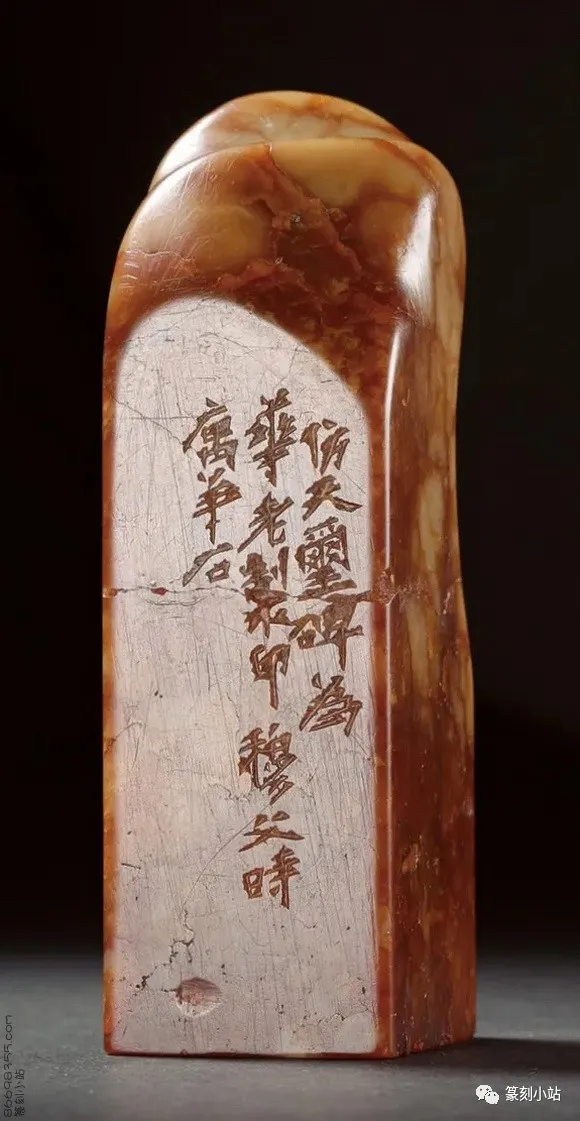 仿天璽碑為
華老製印 穆父時
寓羊石
86698355.com
篆刻小站
篆刻小站